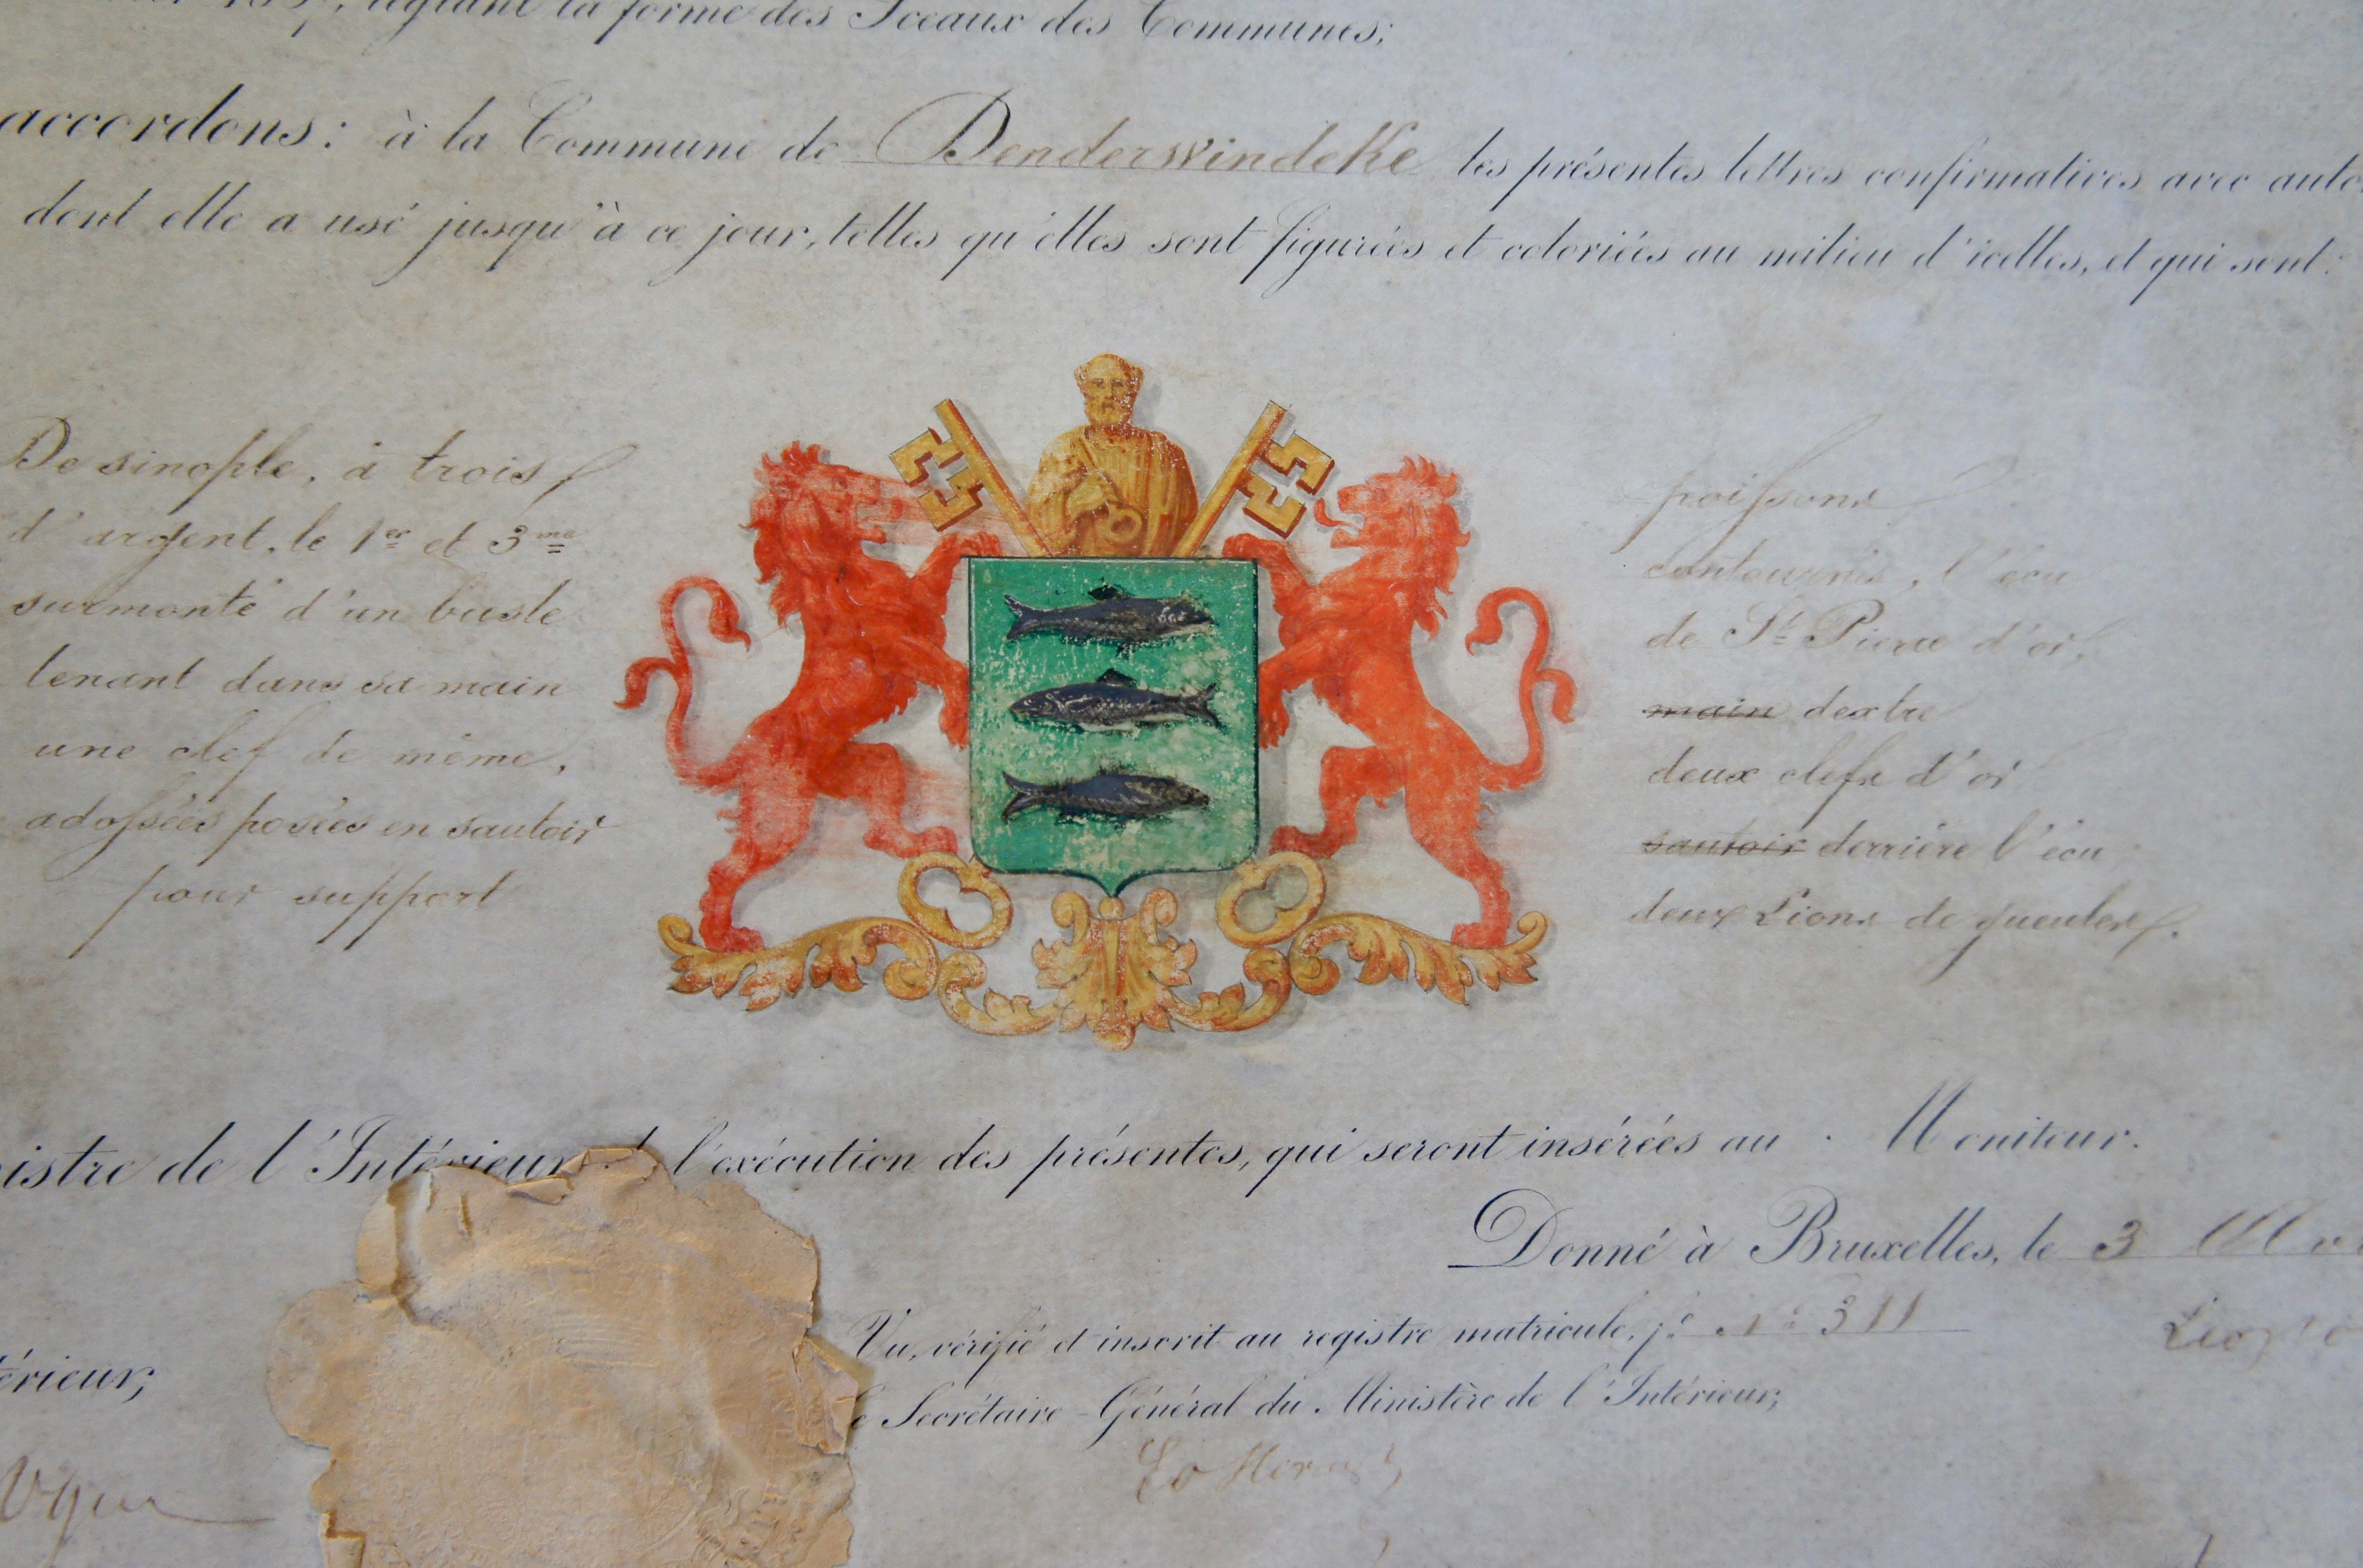 réglant la forme des Sceaux des Communes;
accordons: à la Commune de Denderwindeke les présentes lettres confirmatives avec
dont elle a usé jusqu'à ce jour, telles qu'elles sont figurées et coloriées au milieu d'icelles, et qui sont:
De sinople, à trois poissons
d'argent, le 1er et 3me contournés, l'écu
surmonté d'un buste de St Pierre d'or,
tenant dans sa main main dextre
une clef de même, deux clefs d'or
adossées posées en sautoir sautoir derrière l'écu
pour support deux Lions de gueules.
istre de l'Intérieur l'exécution des présentes, qui seront insérées au Moniteur.
Donné à Bruxelles, le 3
Vu, vérifié et inscrit au registre matricule, fo No 311
érieur;
Secrétaire-Général du Ministère de l'Intérieur;